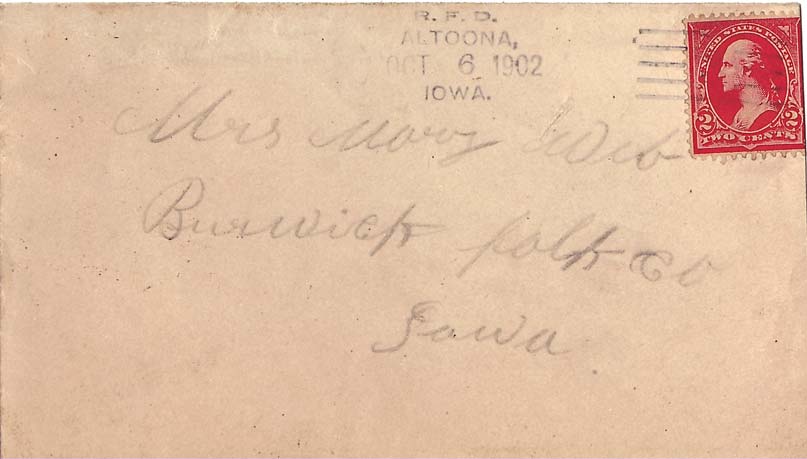 R. F. D.
ALTOONA,
OCT 6 1902
IOWA.
UNITED STATES POSTAGE
2 2
TWO CENTS
Mrs Mary Web
Burwick polk Co
Iowa